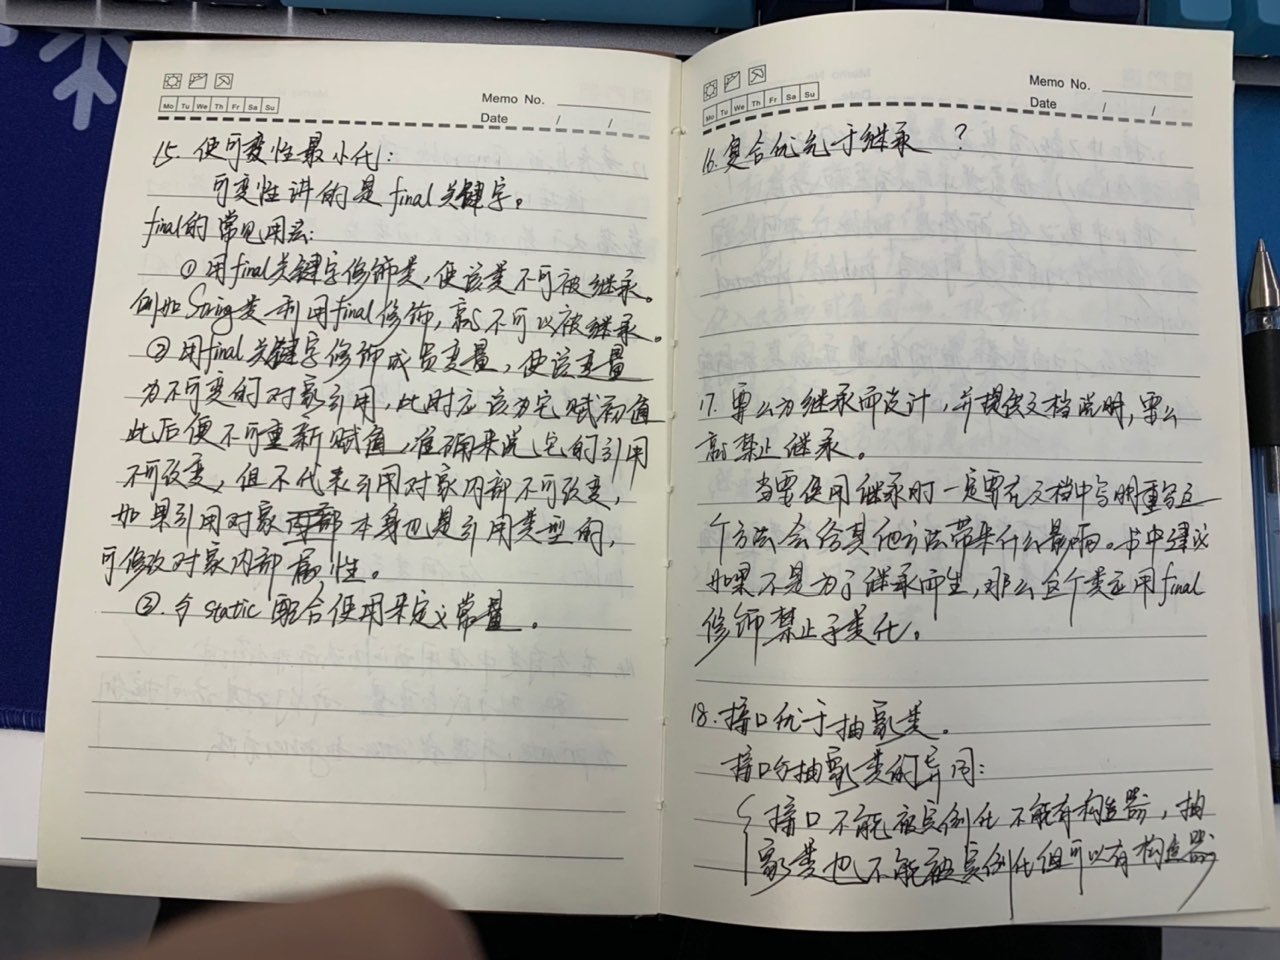 Mo Tu We Th Fr Sa Su
Memo No.
Date / /
15. 使可变性最小化：
可变性讲的是 final 关键字。
final的常见用法：
① 用final关键字修饰类，使该类不可被继承。
例如String类 利用final修饰，就不可以被继承。
② 用final关键字修饰成员变量，使该变量
为不可变的对象引用，此时应该为它赋初值
此后便不可重新赋值，准确来说它的引用
不可改变，但不代表引用对象内部不可改变，
如果引用对象内部本身也是引用类型的，
可修改对象内部属性。
③. 与 static 配合使用来定义常量。
Mo Tu We Th Fr Sa Su
Memo No.
Date / /
16. 复合优先于继承 ？
17. 要么为继承而设计，并提供文档说明，要么
就禁止继承。
当要使用继承时一定要在文档中写明重写这
个方法会给其他方法带来什么影响。书中建议
如果不是为了继承而生，那么这个类应用final
修饰禁止子类化。
18. 接口优于抽象类。
接口与抽象类的异同：
接口不能被实例化 不能有构造器，抽
象类也不能被实例化但可以有构造器